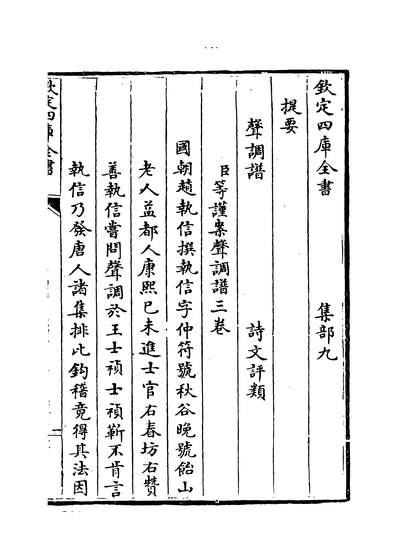 欽定四庫全書　集部九
提要
聲調譜　詩文評類
臣等謹案聲調譜三卷
國朝趙執信撰執信字仲符號秋谷晚號飴山
老人益都人康熙己未進士官右春坊右贊
善執信嘗問聲調於王士禎士禎靳不肯言
執信乃發唐人諸集排比鈎稽竟得其法因
欽定四庫全書